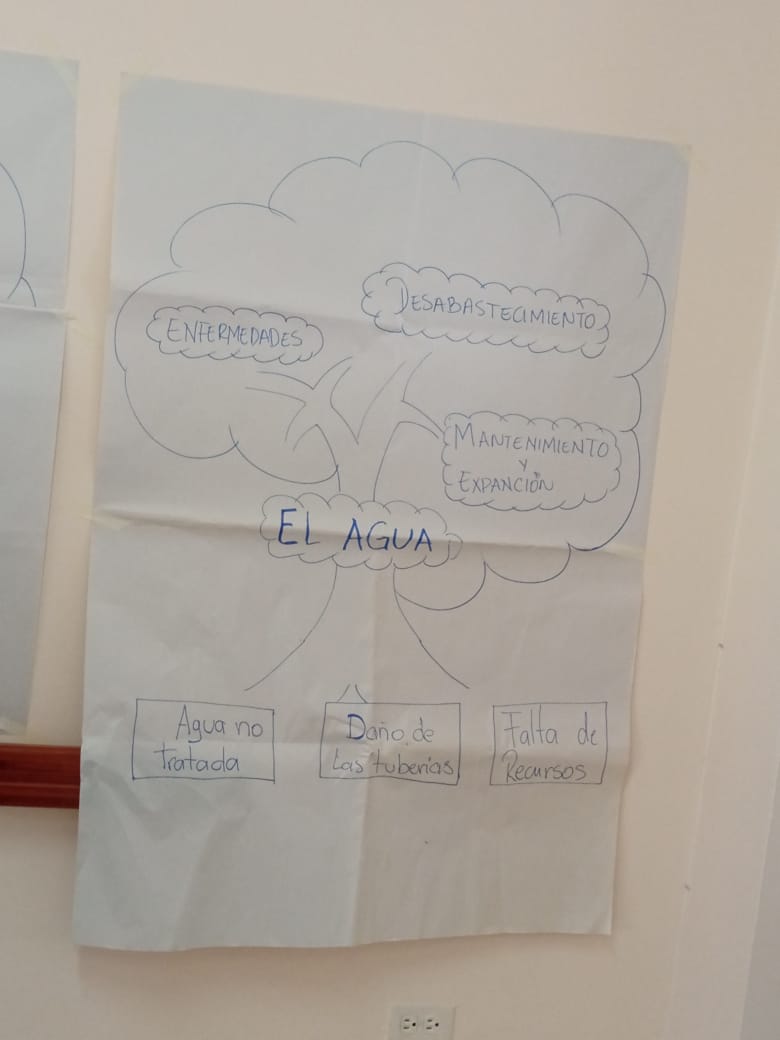 DESABASTECIMIENTO
ENFERMEDADES
MANTENIMIENTO
Y
EXPANCIÓN
EL AGUA
Agua no
tratada
Daño de
Las tuberias
Falta de
Recursos